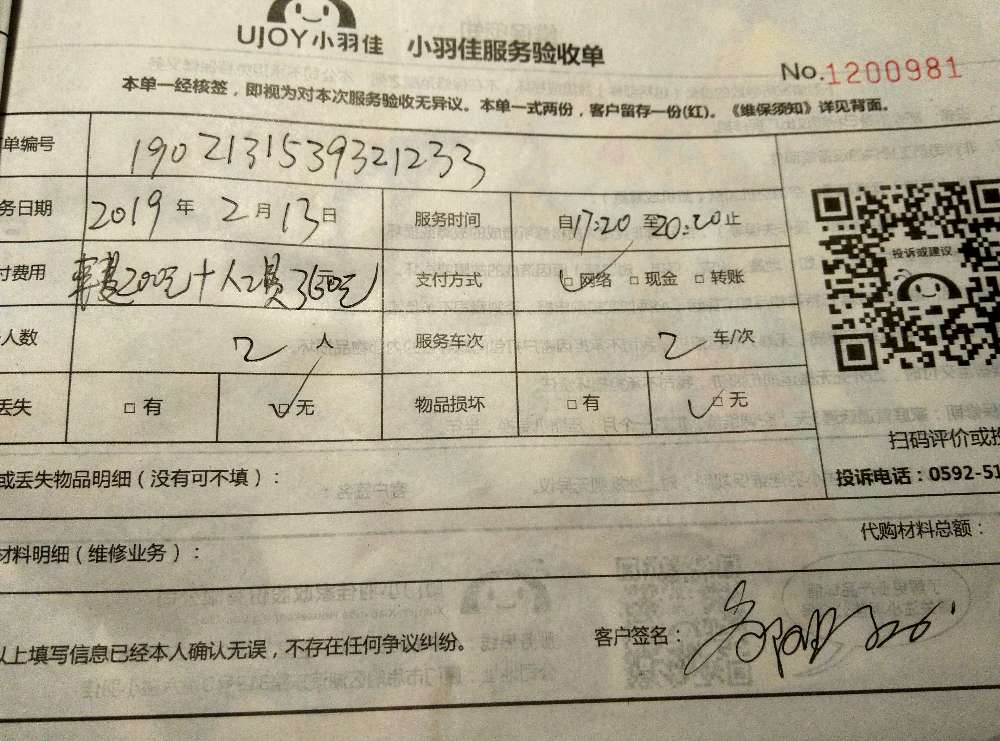 UJOY小羽佳 小羽佳服务验收单
No.1200981
本单一经核签，即视为对本次服务验收无异议。本单一式两份，客户留存一份(红)。《维保须知》详见背面。
单编号 190213153932 1233
务日期 2019 年 2 月 13 日 服务时间 自17:20 至20:20止
付费用 车费200元+人工费360元 支付方式 □网络 □现金 □转账
人数 2 人 服务车次 2 车/次
丢失 □有 □无 物品损坏 □有 □无
投诉或建议
扫码评价或投
投诉电话：0592-51
或丢失物品明细（没有可不填）：
代购材料总额：
材料明细（维修业务）：
以上填写信息已经本人确认无误，不存在任何争议纠纷。 客户签名：